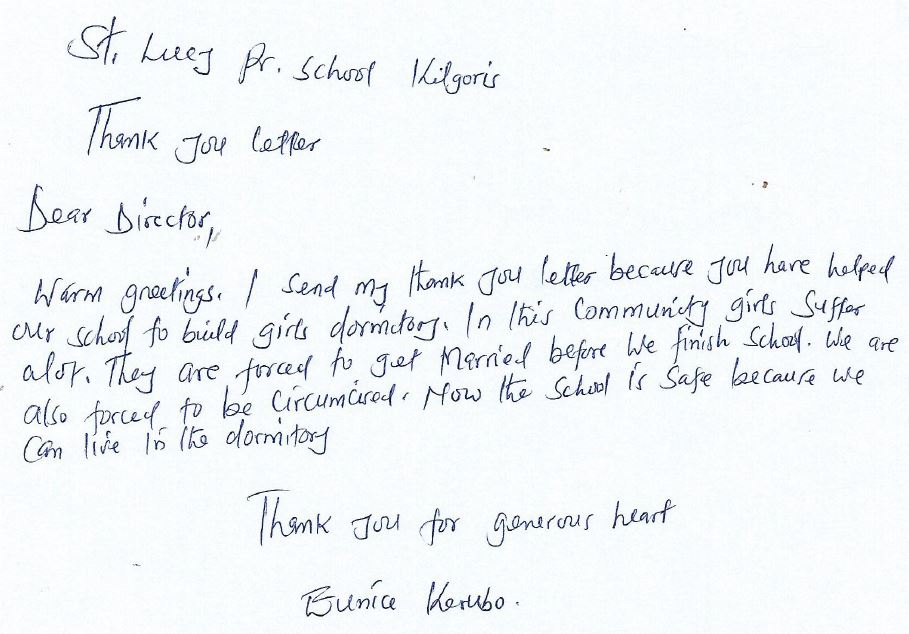 St. Lucy Pr. School Kilgoris
Thank you letter
Dear Director,
Warm greetings. I send my thank you letter because you have helped
our school to build girls dormitory. In this community girls suffer
alot. They are forced to get married before we finish school. We are
also forced to be circumcised. Now the school is safe because we
can live in the dormitory
Thank you for generous heart
Eunice Kerubo.